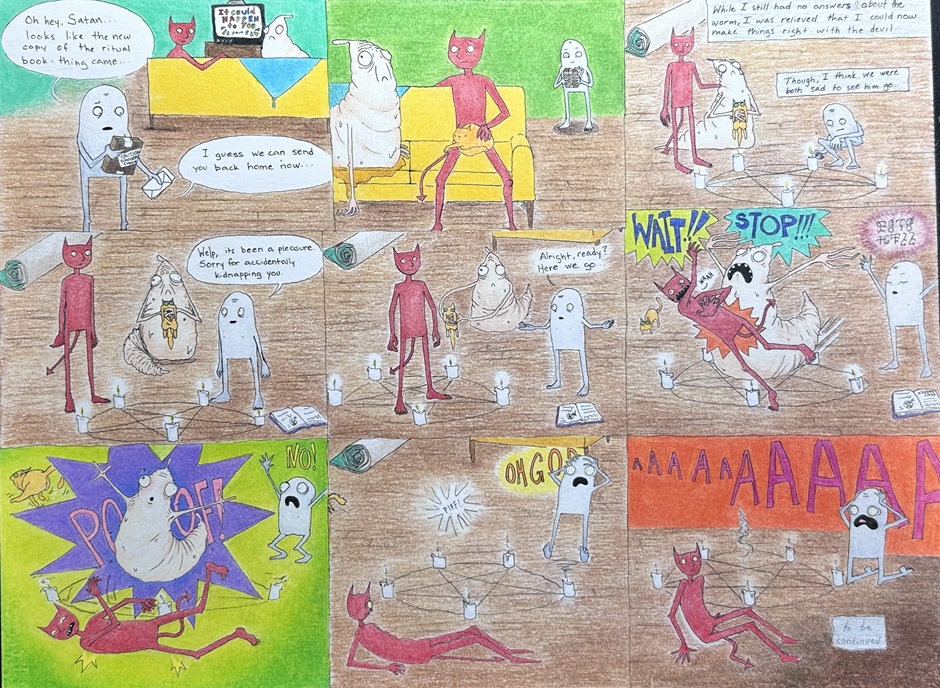 Oh hey, Satan...
looks like the new
copy of the ritual
book-thing came...
It could
HAPPEN
to YOU
I guess we can send
you back home now...
While I still had no answers about the
worm, I was relieved that I could now
make things right with the devil.
Though, I think we were
both sad to see him go.
Welp, its been a pleasure.
Sorry for accidentally
kidnapping you.
Alright, ready?
Here we go.
WAIT!!
STOP!!!
WAAH
POOF!
NO!
PIFF!
OM GOD
AAAAAAAAAAA
to be
continued